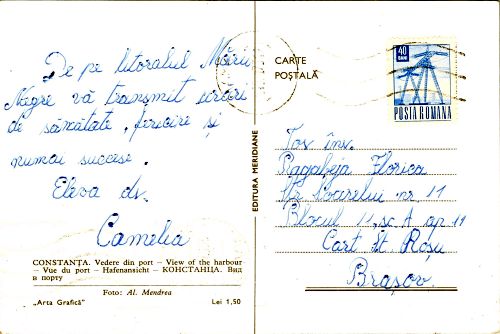 De pe litoralul Mării
Negre vă transmit urări
de sănătate, fericire și
numai succese.
Eleva dv.
Camelia
CONSTANȚA. Vedere din port – View of the harbour
– Vue du port – Hafenansicht – КОНСТАНЦА. Вид
в порту
Foto: Al. Mendrea
„Arta Grafică”
Lei 1,50
EDITURA MERIDIANE
CARTE
POȘTALĂ
40
BANI
POSTA ROMANA
Tov. înv.
Florica
Str Soarelui nr 11
Blocul 11, sc A ap 11
Cart St. Roșu
Brașov.